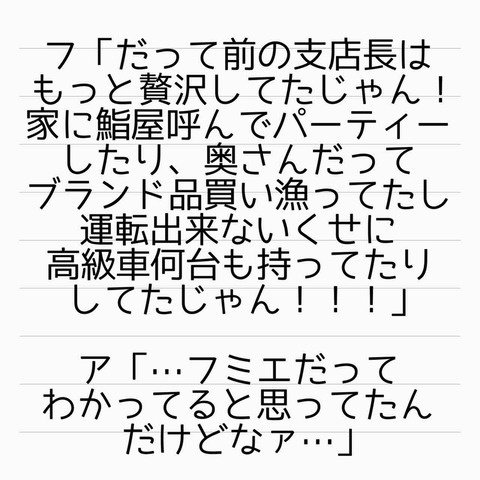 フ「だって前の支店長は
もっと贅沢してたじゃん！
家に鮨屋呼んでパーティー
したり、奥さんだって
ブランド品買い漁ってたし
運転出来ないくせに
高級車何台も持ってたり
してたじゃん！！！」
ア「…フミエだって
わかってると思ってたん
だけどなァ…」